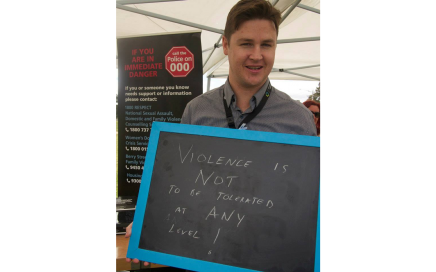 IF YOU
ARE IN
IMMEDIATE
DANGER
call the
Police on
000
If you or someone you know
needs support or information
please contact:
1800 RESPECT
National Sexual Assault,
Domestic and Family Violence
Counselling
1800 737
Women's
Crisis Service
1800
Family Violence
VIOLENCE IS
NOT
TO BE TOLERATED
AT ANY
LEVEL!